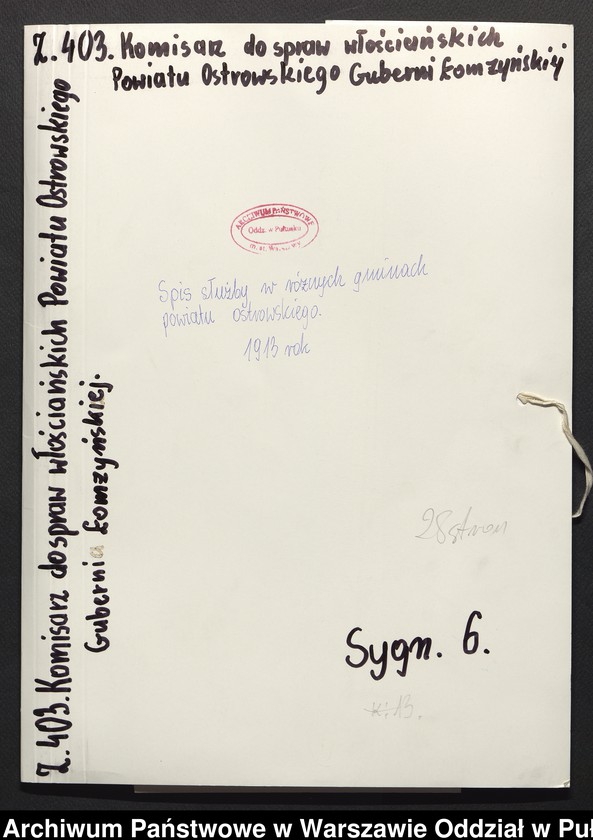 Z. 403. Komisarz do spraw włościańskich
Powiatu Ostrowskiego Guberni Łomżyńskiej
ARCHIWUM PAŃSTWOWE
Oddz. w Pułtusku
Spis służby w różnych gminach
powiatu ostrowskiego.
1913 rok
28 stron
Sygn. 6.
k. 13.
Z. 403. Komisarz do spraw włościańskich Powiatu Ostrowskiego
Gubernia Łomżyńskiej.
Archiwum Państwowe w Warszawie Oddział w Puł